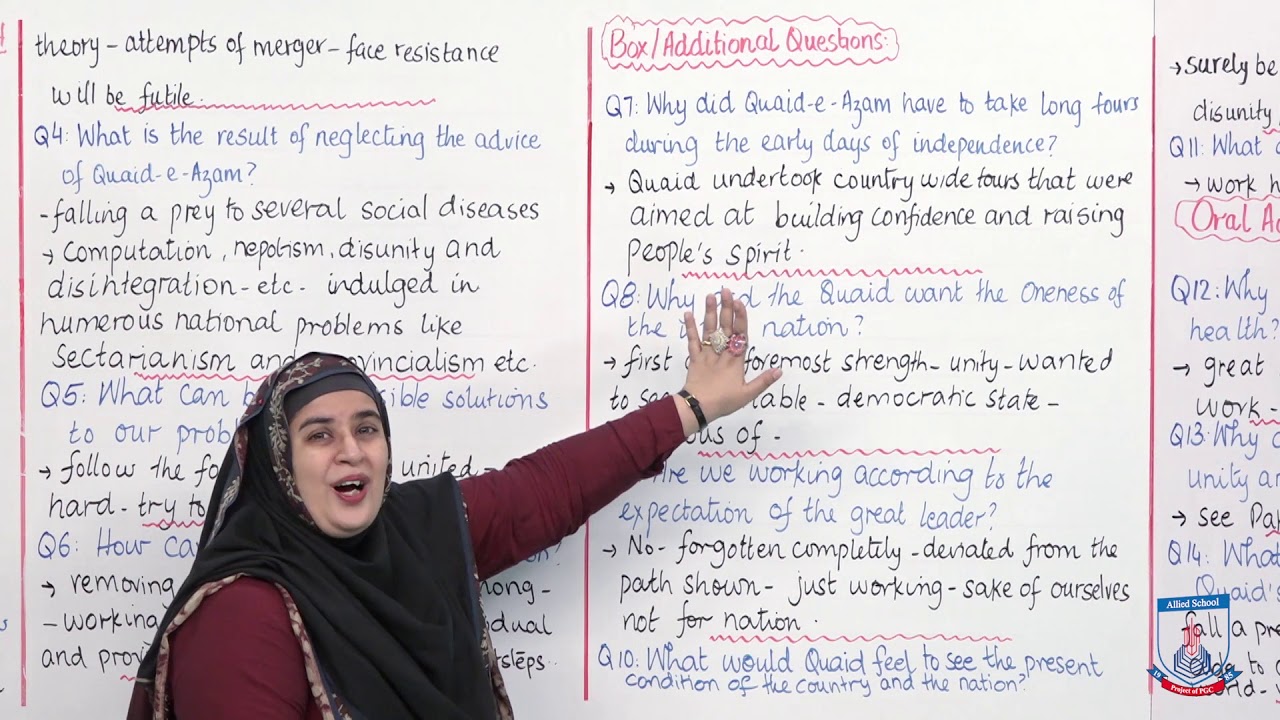 theory - attempts of merger - face resistance
will be futile.
Q4: What is the result of neglecting the advice
of Quaid-e-Azam?
- falling a prey to several social diseases
→ Computation, nepotism, disunity and
disintegration - etc. indulged in
numerous national problems like
Sectarianism and provincialism etc.
Q5: What can solutions
to our
→ follow the united -
hard - try to
Q6: How
→ removing
- working
and
Box/Additional Questions:
Q7: Why did Quaid-e-Azam have to take long tours
during the early days of independence?
→ Quaid undertook country wide tours that were
aimed at building confidence and raising
People's spirit.
Q8: Why did the Quaid want the Oneness of
the nation?
→ first foremost strength - unity - wanted
to - democratic state -
of -
Are we working according to the
expectation of the great leader?
→ No - forgotten completely - deviated from the
path shown - just working - sake of ourselves
not for nation.
Q10: What would Quaid feel to see the present
condition of the country and the nation?
→ surely be
disunity
Q11: What
→ work
Oral
Q12: Why
health?
→ great
work -
Q13: Why
unity
→ see
Q14: What
Quaid's
Allied School
19 85
Project of PGC